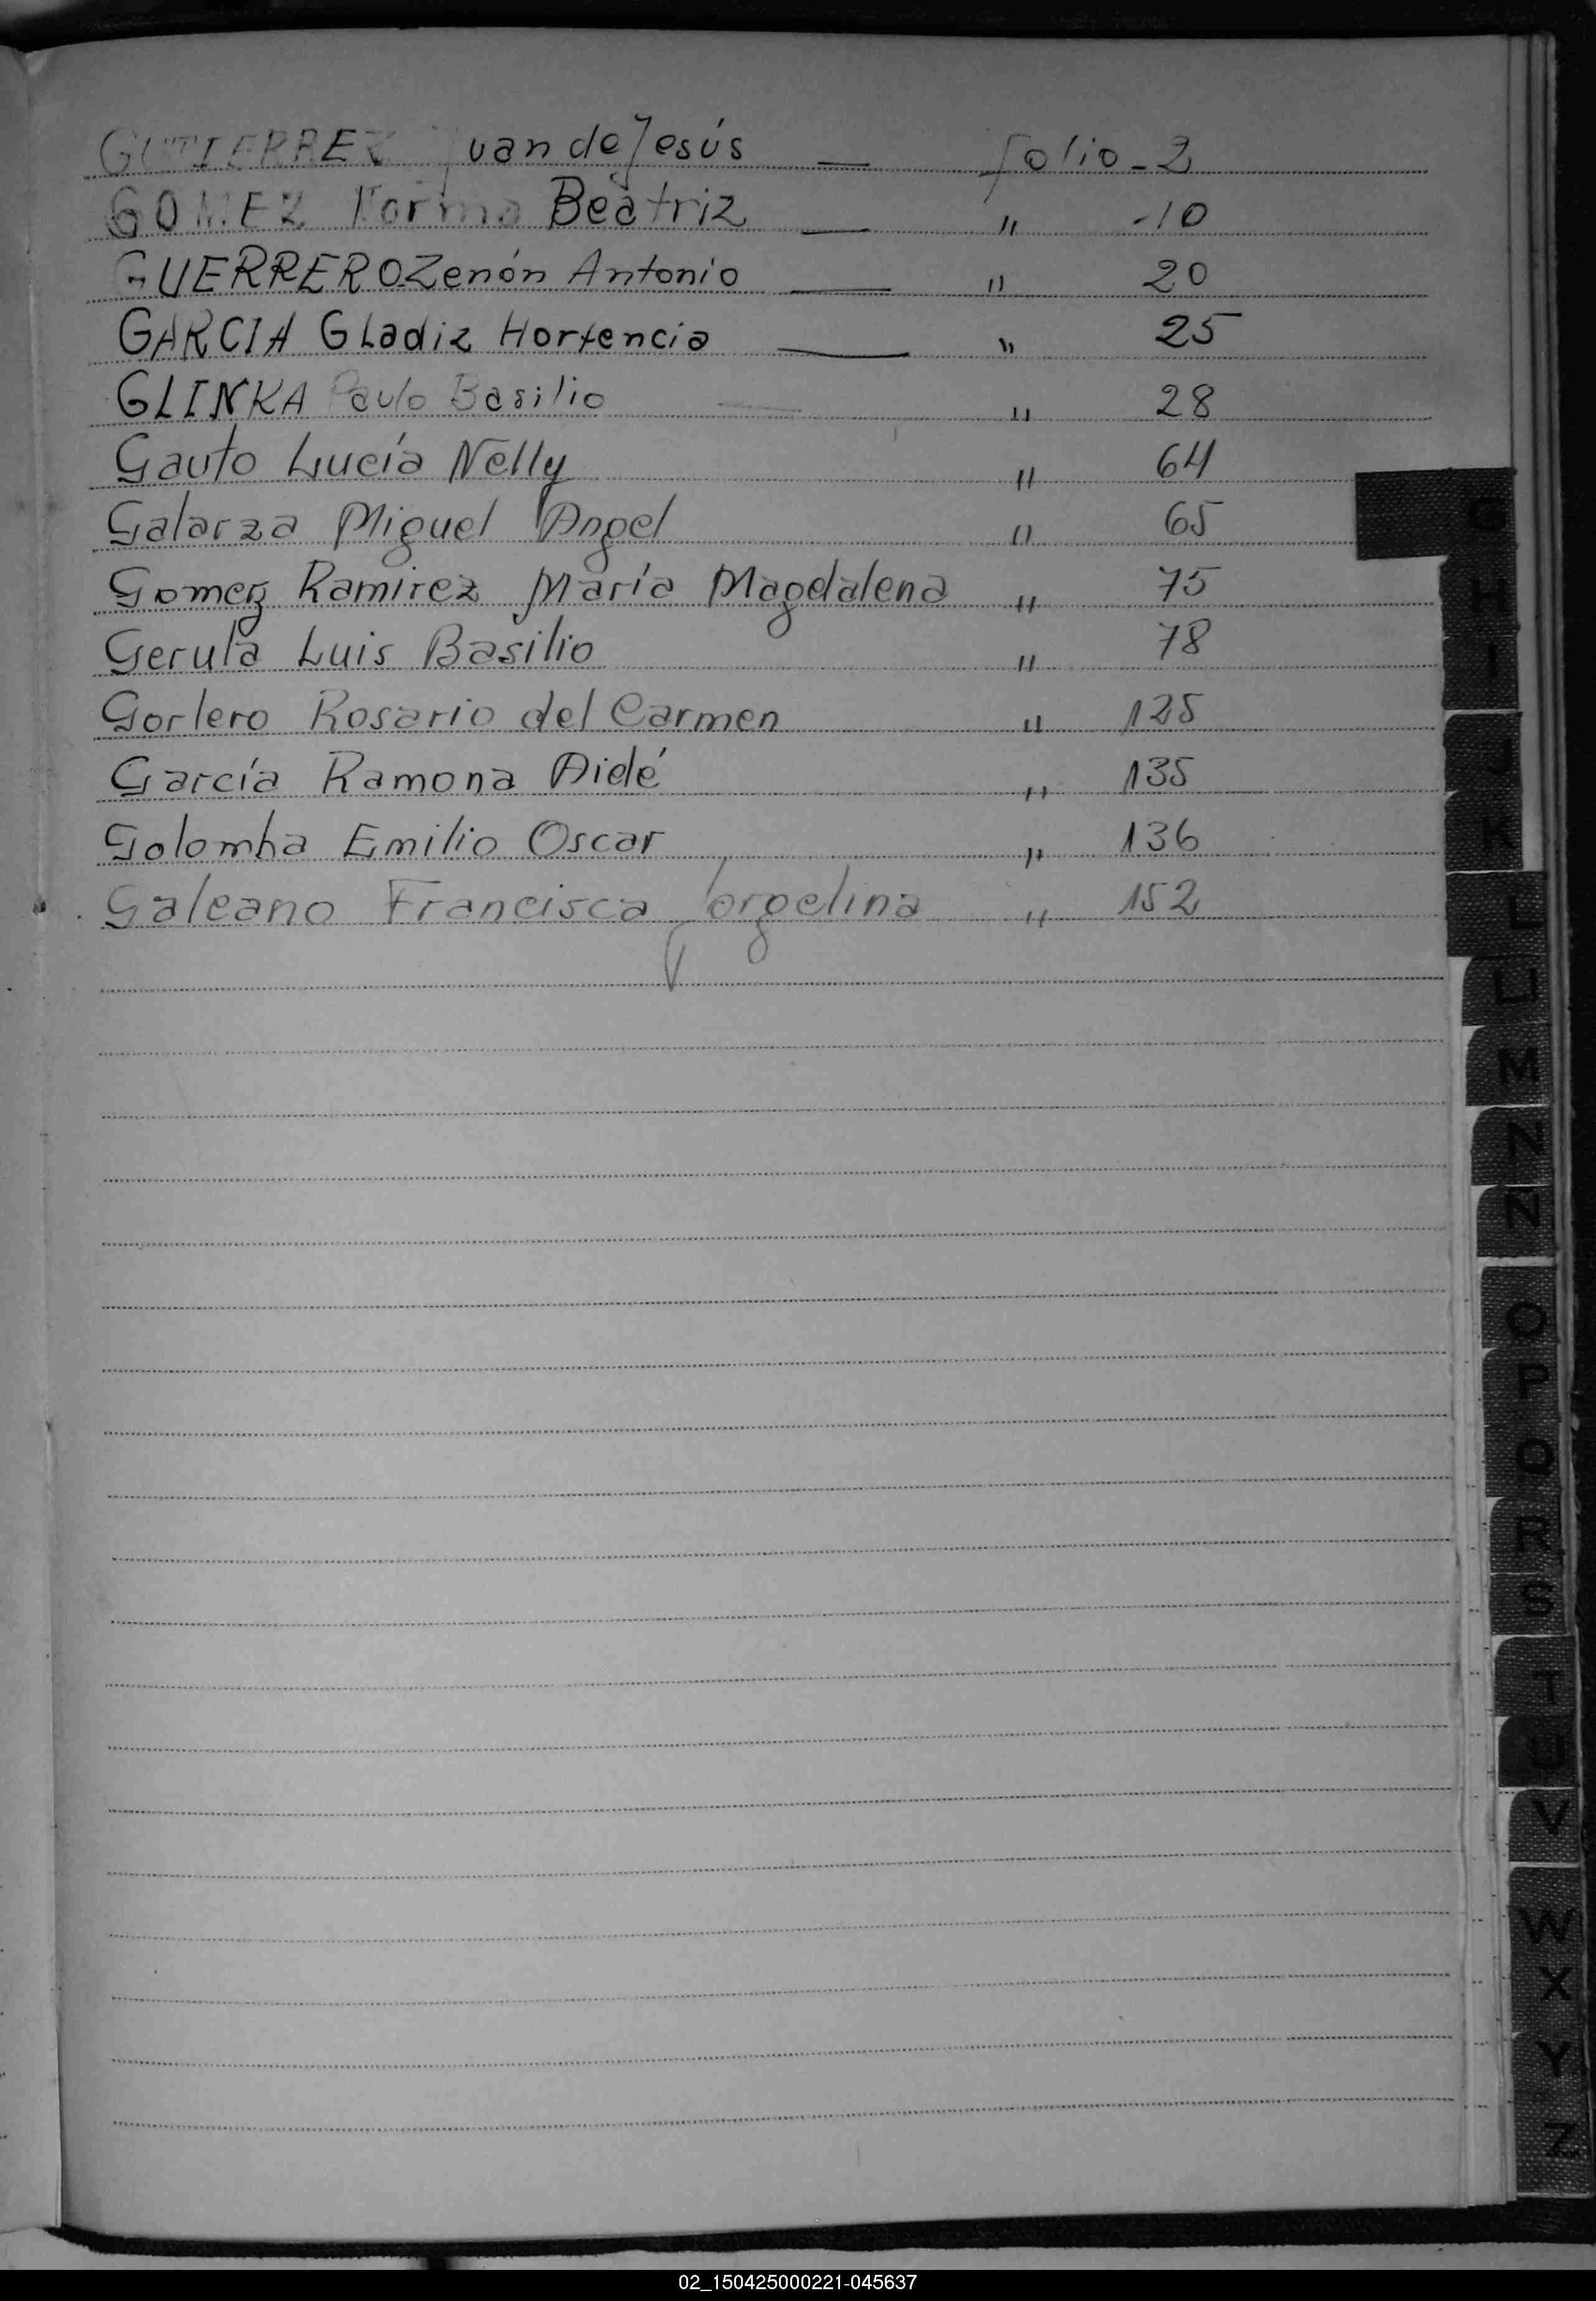 GUTIERREZ Juan de Jesús — folio - 2
GOMEZ Norma Beatriz — " - 10
GUERRERO Zenón Antonio — " 20
GARCIA Gladiz Hortencia — " 25
GLINKA Paulo Basilio — " 28
Gauto Lucía Nelly " 64
Galarza Miguel Angel " 65
Gomez Ramirez María Magdalena " 75
Gerula Luis Basilio " 78
Gorlero Rosario del Carmen " 125
García Ramona Aidé " 135
Golomba Emilio Oscar " 136
Galeano Francisca Jorgelina " 152
G
H
I
J
K
L
LL
M
N
Ñ
O
P
Q
R
S
T
U
V
W
X
Y
Z
02_150425000221-045637